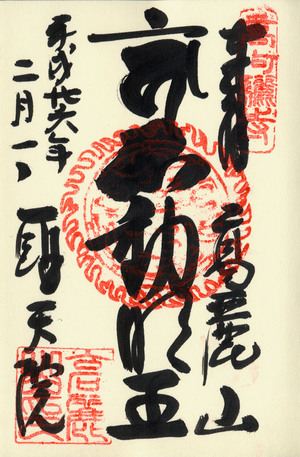 奉拝
高麗山
不動明王
平成廿六年
二月一日
聖天院